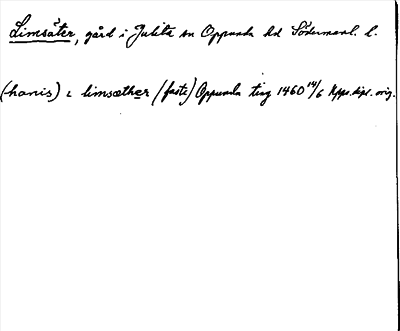 Limsäter, gård i Julita sn Oppunda hd Södermanl. l.
(hanis) i limsæther (faste) Oppunda ting 1460 14/6 Kpps.dipl. orig.